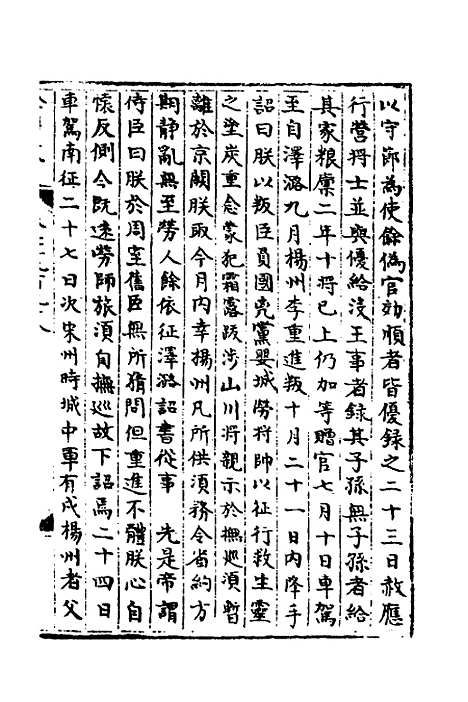 以守節為使餘偽官効順者皆優錄之二十三日赦應
行營將士並與優給沒王事者錄其子孫無子孫者給
其家粮稟二年十將已上仍加等贈官七月十日車駕
至自澤潞九月楊州李重進叛十月二十一日內降手
詔曰朕以叛臣員國兇黨嬰城勞将帥以征行救生靈
之塗炭重念蒙犯霜露跋涉山川將親示於撫巡須暫
離於京闕朕取今月內幸揚州凡所供須務令省約方
期静亂無至勞人餘依征澤潞詔書從事　先是帝謂
侍臣曰朕於周室舊臣無所猜問但重進不體朕心自
懷反側今既遠勞師旅須自撫巡故下詔焉二十四日
車駕南征二十七日次宋州時城中軍有戍楊州者父